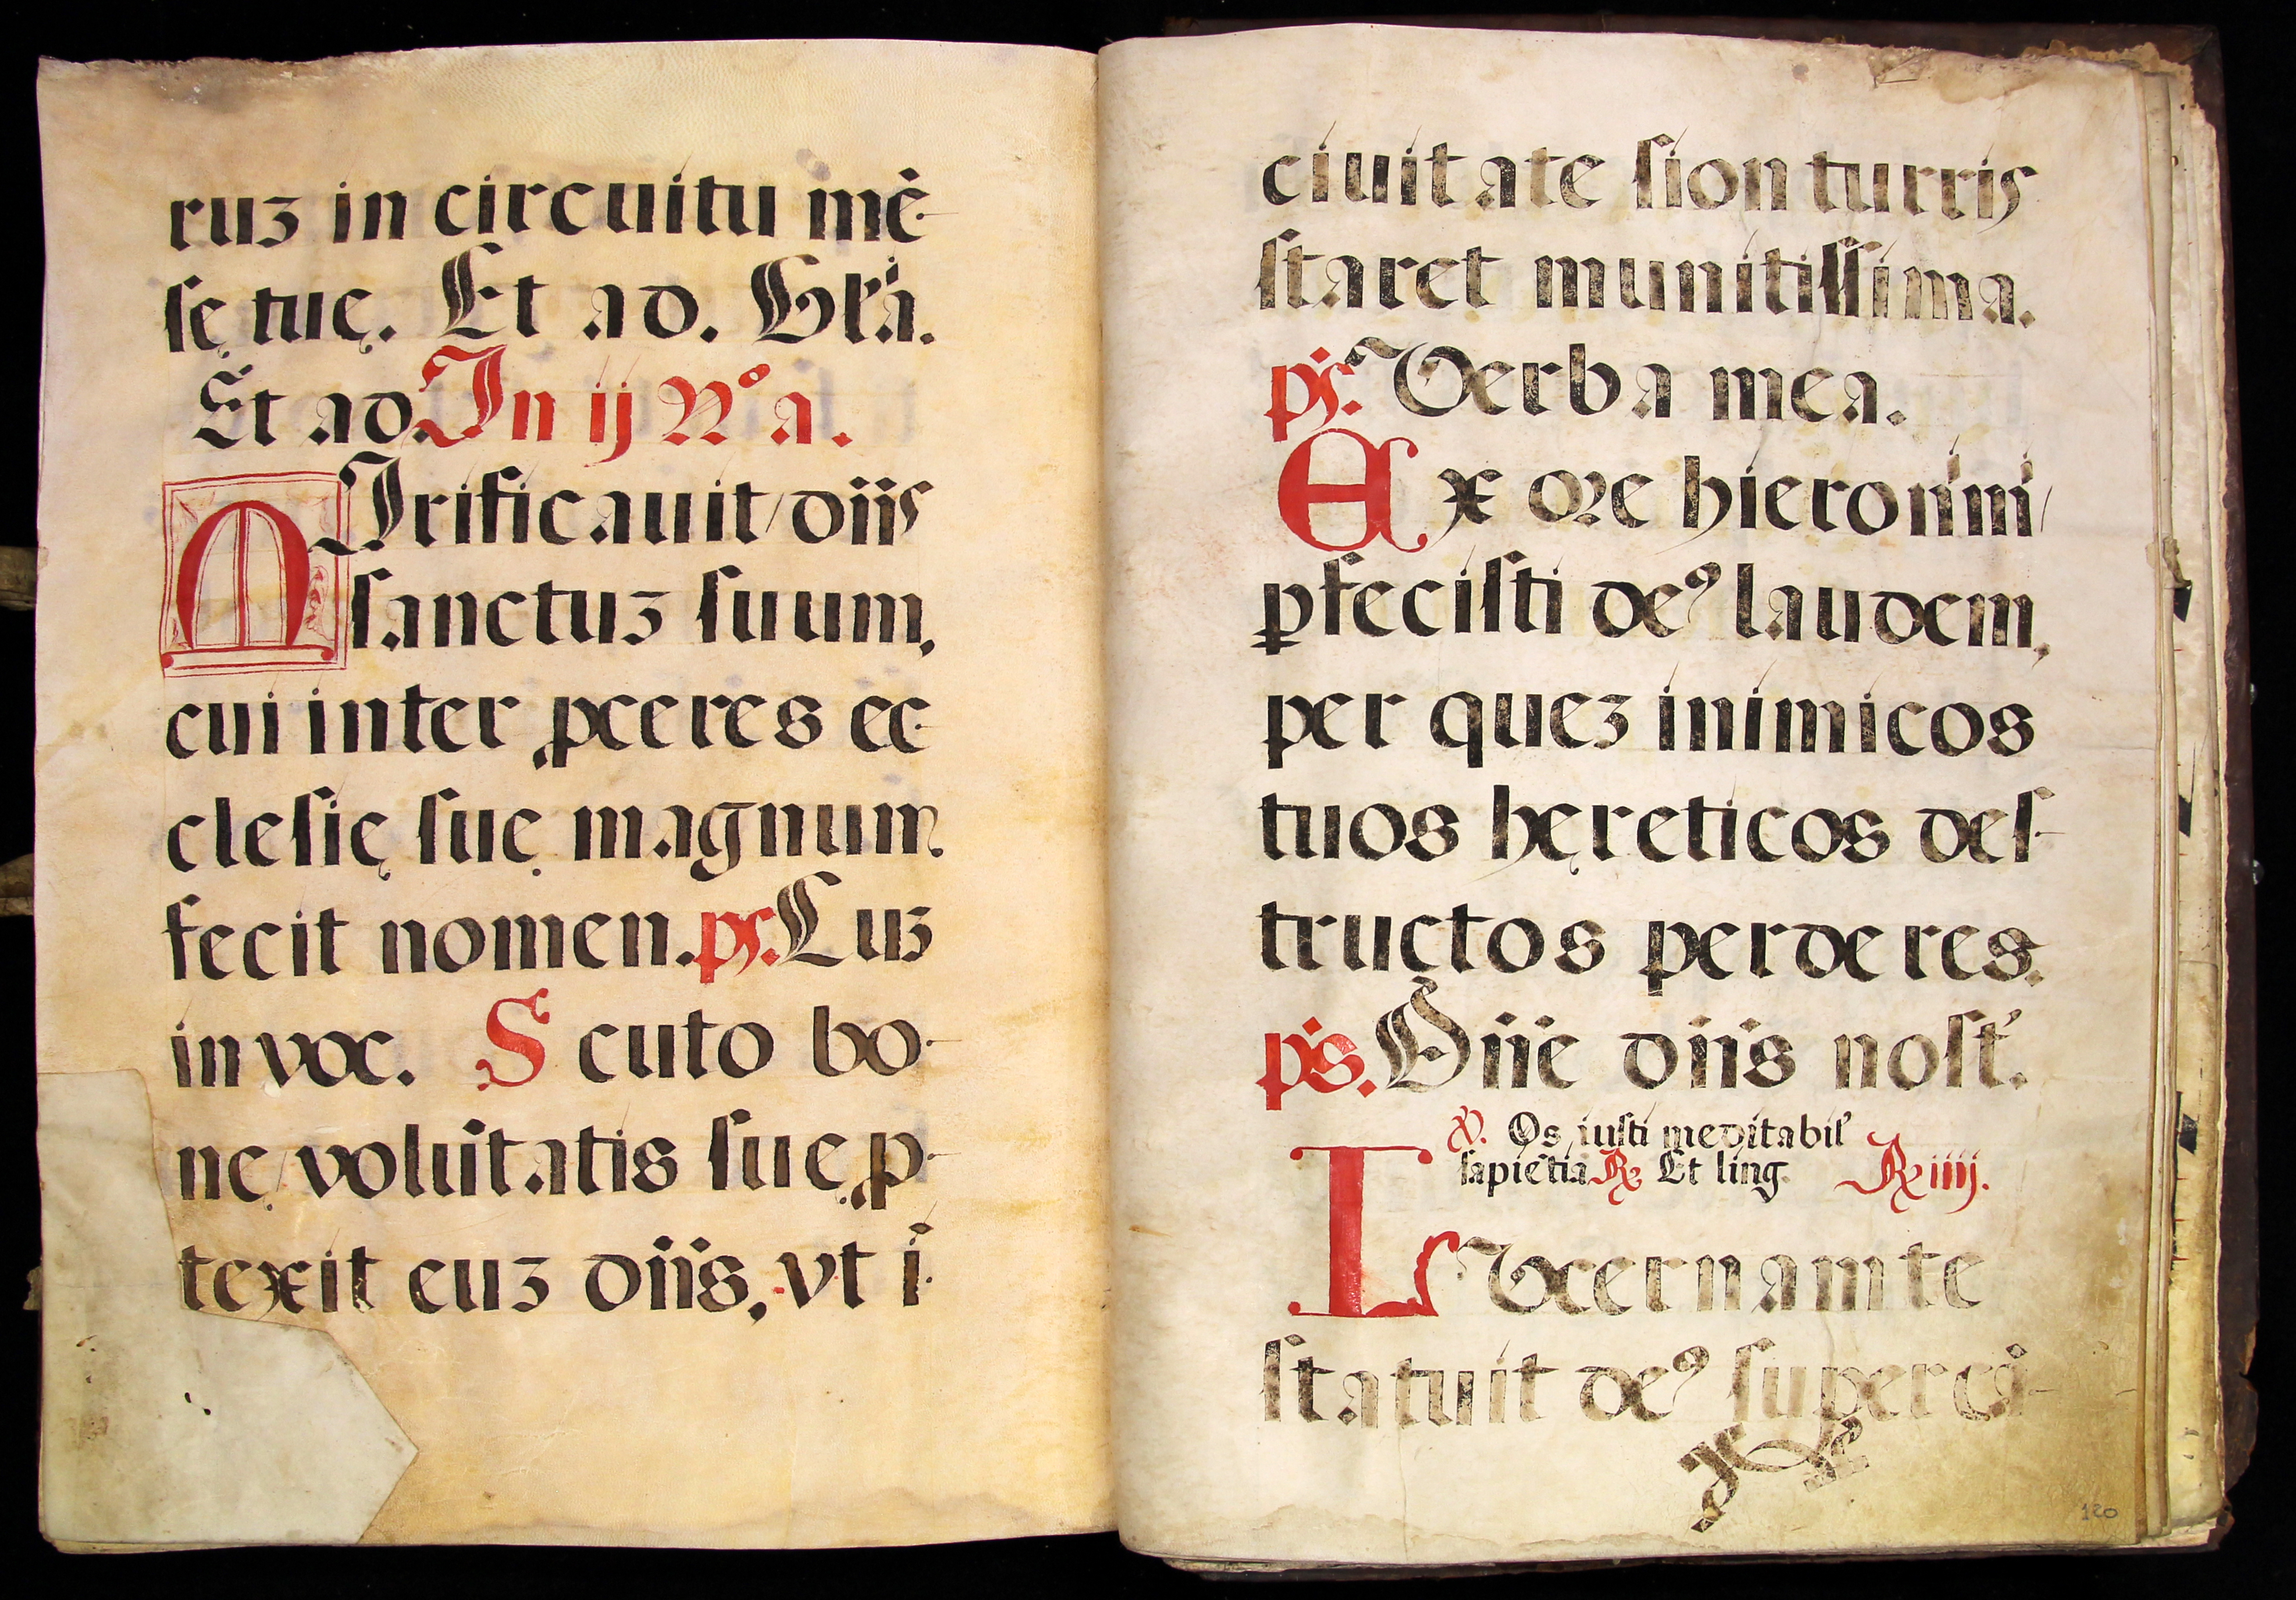 ruʒ in circuitu mē-
ſę tuę. Et ad. Glȓa.
Et ad. In ij Nº a.
MIrificauit dn̄s
ſanctuʒ ſuum,
cui inter ꝓceres ec-
cleſię ſuę magnum
fecit nomen. ps. Cuʒ
invoc. Scuto bo-
nę volūtatis ſuę ꝓ-
texit euʒ dn̄s, vt ī
ciuitate ſion turris
ſtaret munitiſſima.
ps. Verba mea.
Ex ore hieronimi
ꝑfeciſti deꝰ laudem,
per queʒ inimicos
tuos hęreticos deſ-
tructos perderes.
ps. Dn̄e dn̄s noſt̉.
℣. Os iuſti meditabit̉
ſapiētia ℞ Et ling. ℞ iiij.
LVcernam te
ſtatuit deꝰ ſuper cā-
120